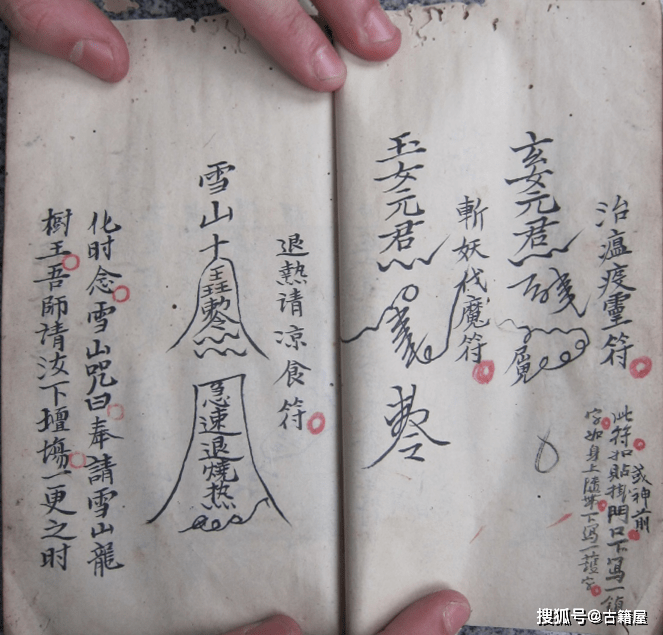 治瘟疫靈符
或神前
此符扣貼掛門口下寫一鎮
字如身上帶下寫一護字
玄女元君
斬妖伐魔符
玉女元君
退熱请凉食符
雪山十
急速退燒热
化时念雪山咒曰奉請雪山龍
樹王吾師请汝下壇場一更之时
搜狐号@古籍屋